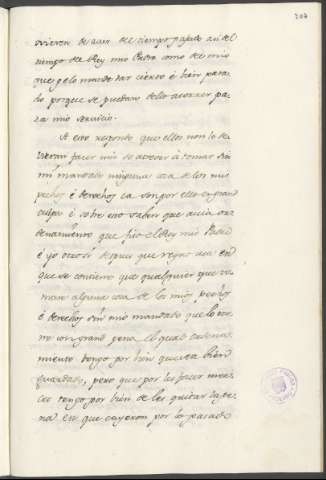 207
ovieren de aver del tiempo pasado asi del
tiempo del Rey mio Padre como del mio
que gelo mande dar cierto è bien para
do porque se puedan dello acorrer pa
ra mio servicio.
A esto respondo que ellos non lo de
vieran facer nin se atrever à tomar sin
mi mandado ninguna cosa de los mis
pechos è derechos ca son por ello en grand
culpa è sobre esto saben que avia or
denamiento que fizo el Rey mio Padre
è yo otrosi despues que regnè acà en
que se contiene que qualquier que to
mare alguna cosa de los mios pechos
è derechos sin mio mandado que lo tor
ne con grand pena, el qual ordena
miento tengo por bien que sea bien
guardado, pero que por les facer mer
ced tengo por bien de les quitar la pe
na en que cayeron por lo pasado